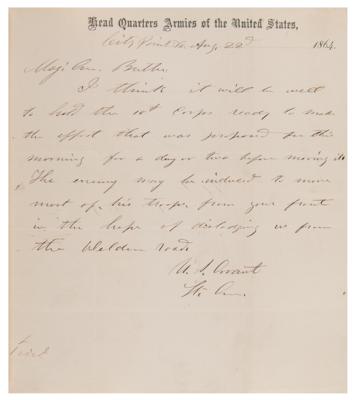 Head Quarters Armies of the United States,
City Point Va. Aug. 22d 1864.
Maj. Gen. Butler
I think it will be well
to hold the 10th Corps ready to make
the effort that was proposed for this
morning for a day or two before moving it.
The enemy may be induced to move
most of his troops from your front
in the hope of dislodging us from
the Weldon road.
U. S. Grant
Lt. Gen.